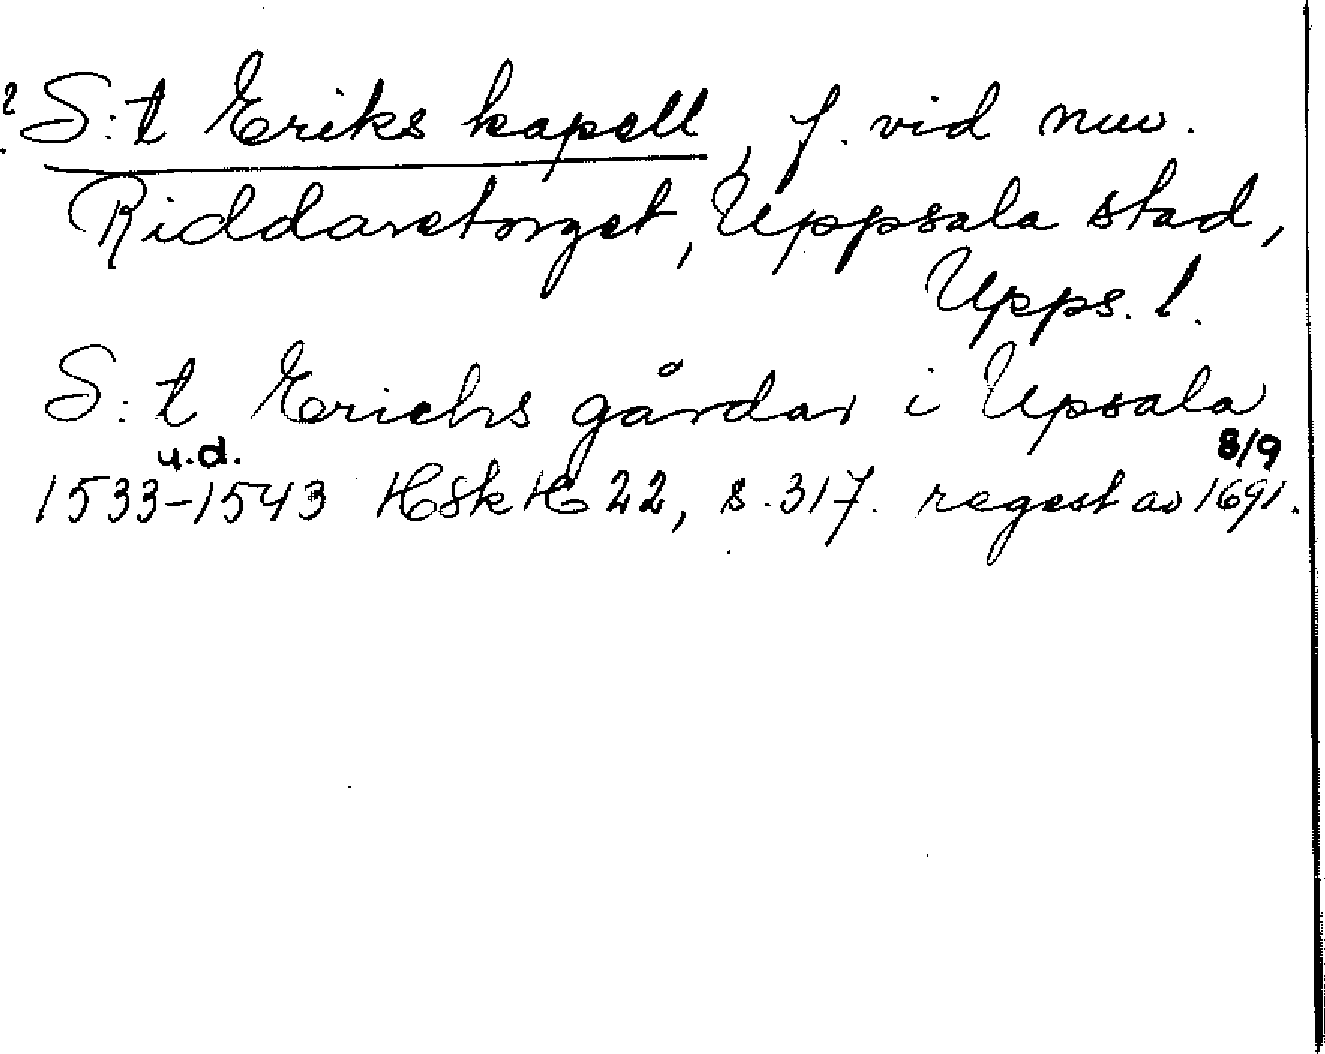 ? S:t Eriks kapell, f. vid nuv.
Riddaretorget, Uppsala stad,
Upps. l.
S:t Erichs gårdar i Upsala
u.d. 8/9
1533-1543 HSkH 22, s. 317. regest av 1691.